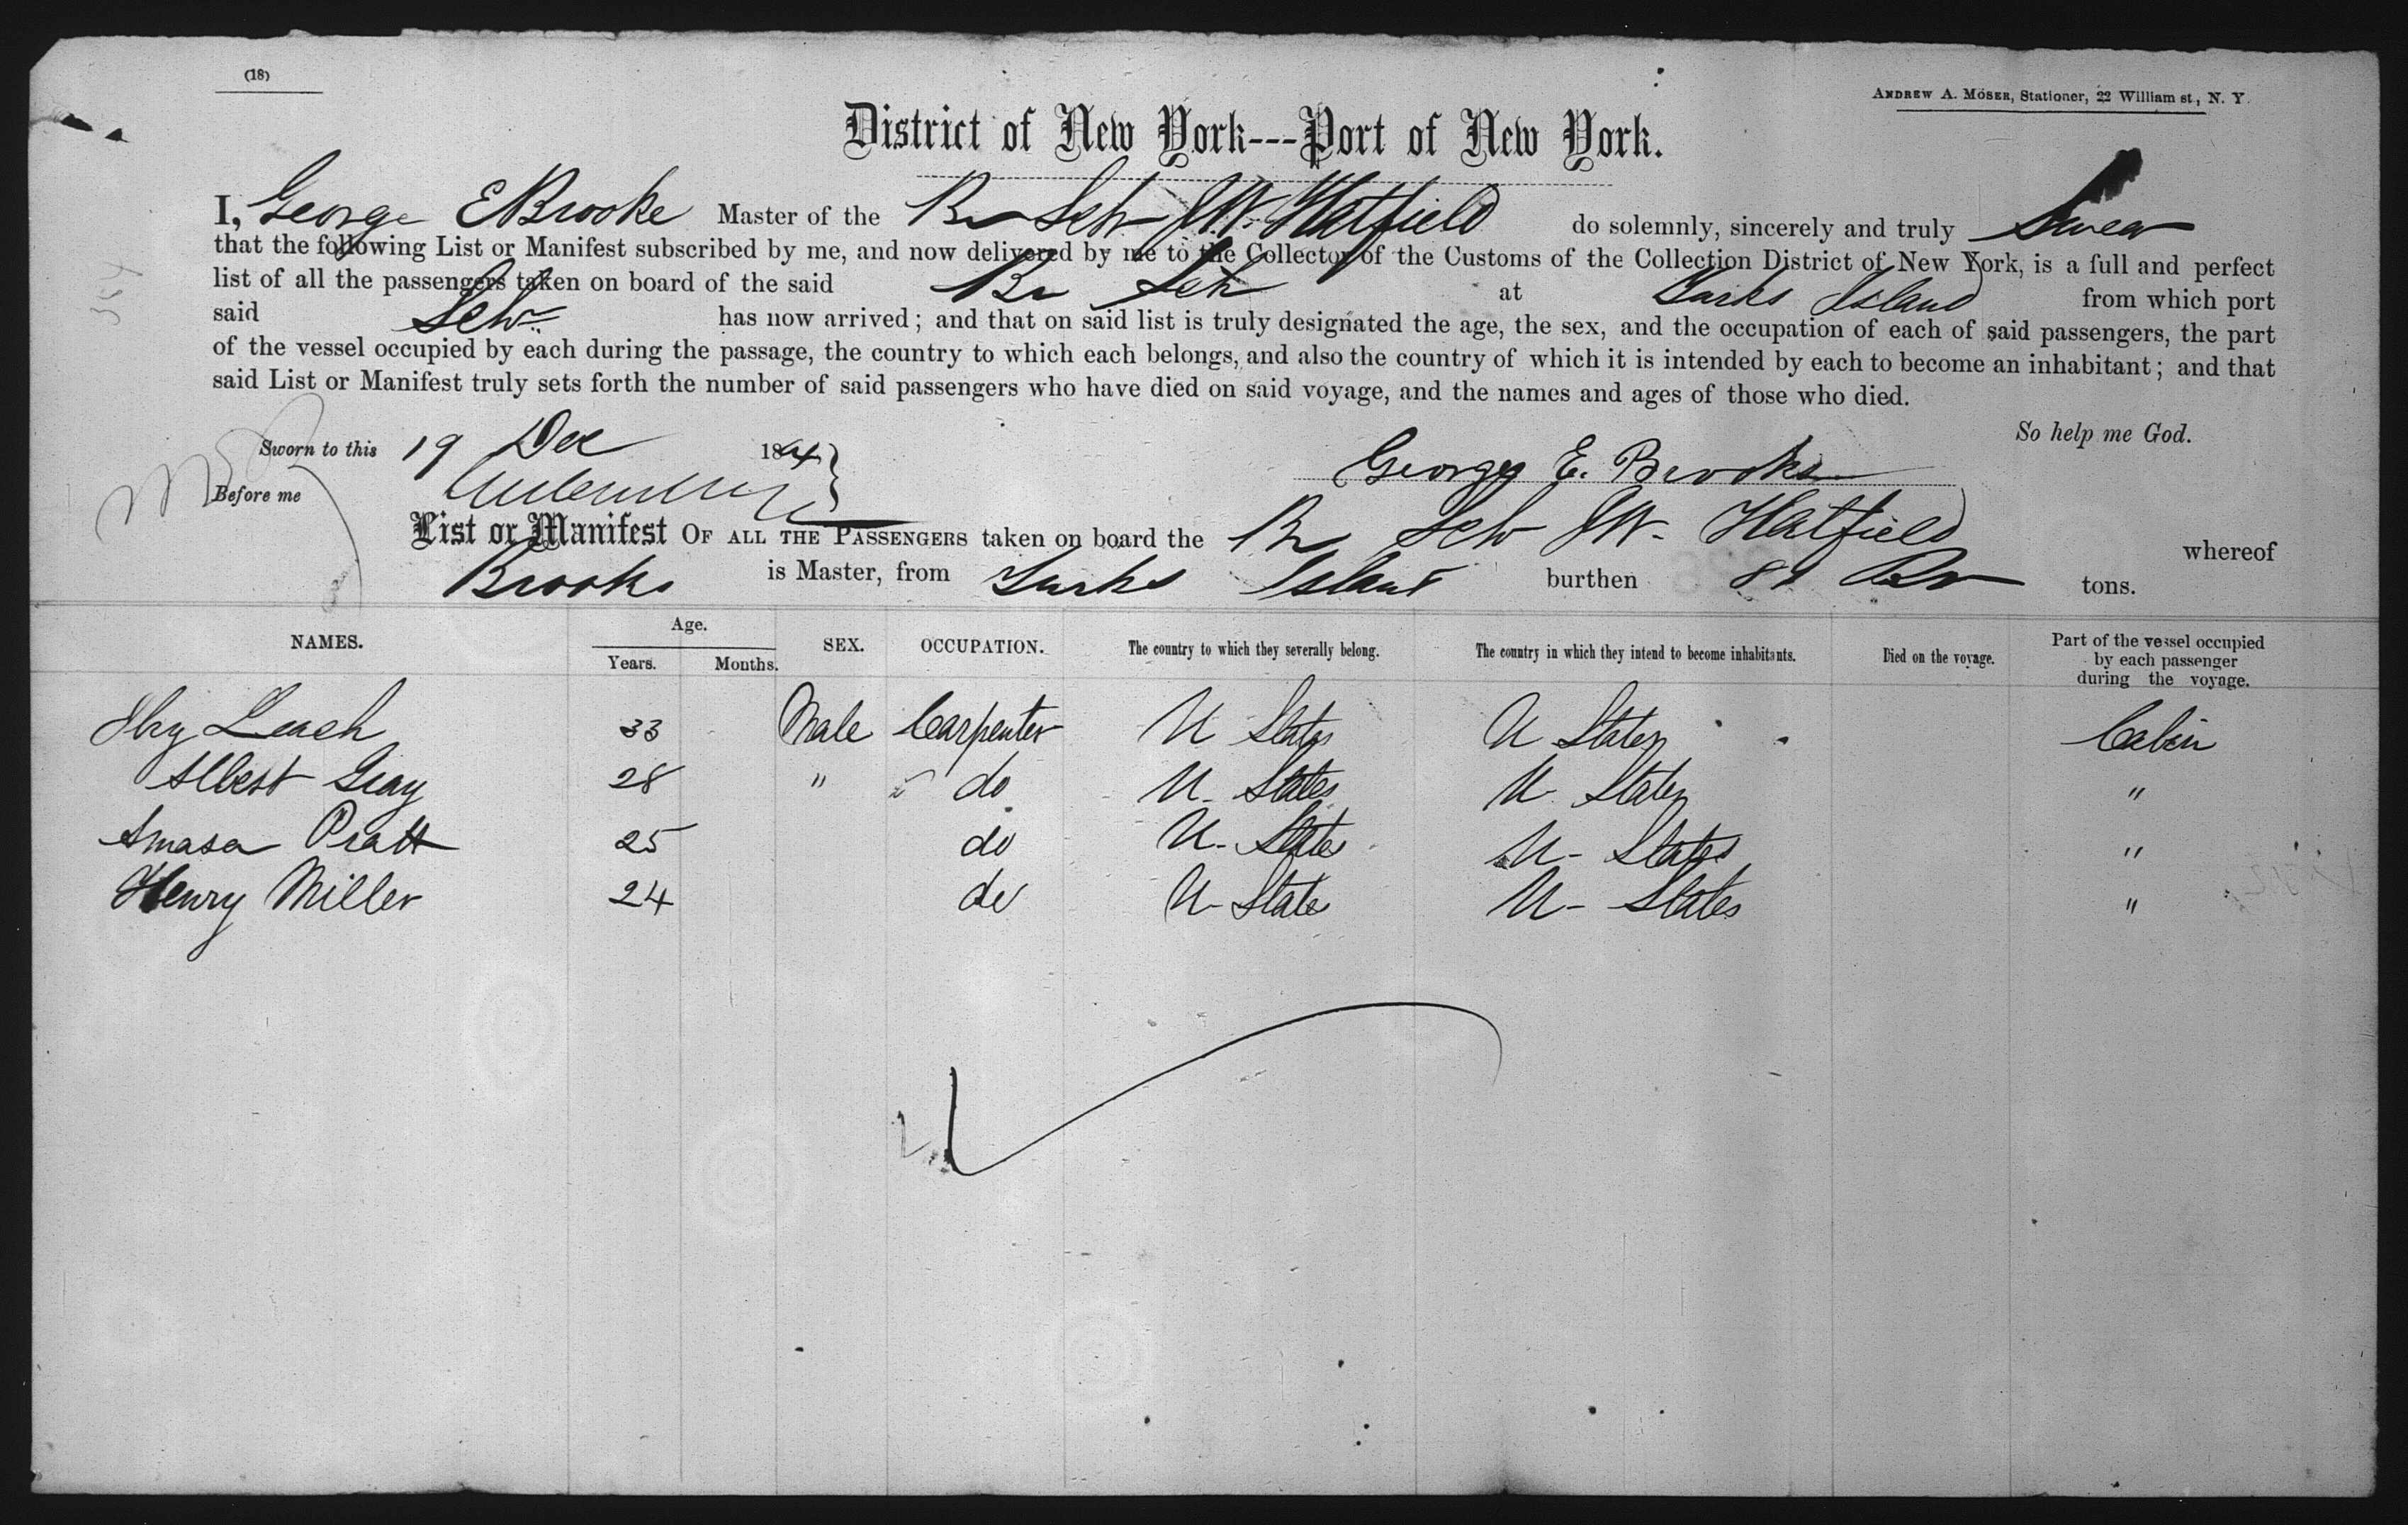 (18)
ANDREW A. MÖSER, Stationer, 22 William st., N. Y.
District of New York---Port of New York.
I, George E Brooke Master of the Br Schr J.W. Hatfield do solemnly, sincerely and truly Swear
that the following List or Manifest subscribed by me, and now delivered by me to the Collector of the Customs of the Collection District of New York, is a full and perfect
list of all the passengers taken on board of the said Br Sch at Turks Island from which port
said Schr has now arrived; and that on said list is truly designated the age, the sex, and the occupation of each of said passengers, the part
of the vessel occupied by each during the passage, the country to which each belongs, and also the country of which it is intended by each to become an inhabitant; and that
said List or Manifest truly sets forth the number of said passengers who have died on said voyage, and the names and ages of those who died.
So help me God.
Sworn to this 19 Dec 184
Before me
George E. Brooks
List or Manifest OF ALL THE PASSENGERS taken on board the Br Schr J.W. Hatfield whereof
Brooks is Master, from Turks Island burthen tons.
NAMES. Age. Years. Months. SEX. OCCUPATION. The country to which they severally belong. The country in which they intend to become inhabitants. Died on the voyage. Part of the vessel occupied by each passenger during the voyage.
Leach 33 Male Carpenter U States U States Cabin
Albert Gray 28 " do U. States U. States "
Amasa Pratt 25 do U- States U- States "
Henry Miller 24 do U- State U- States "